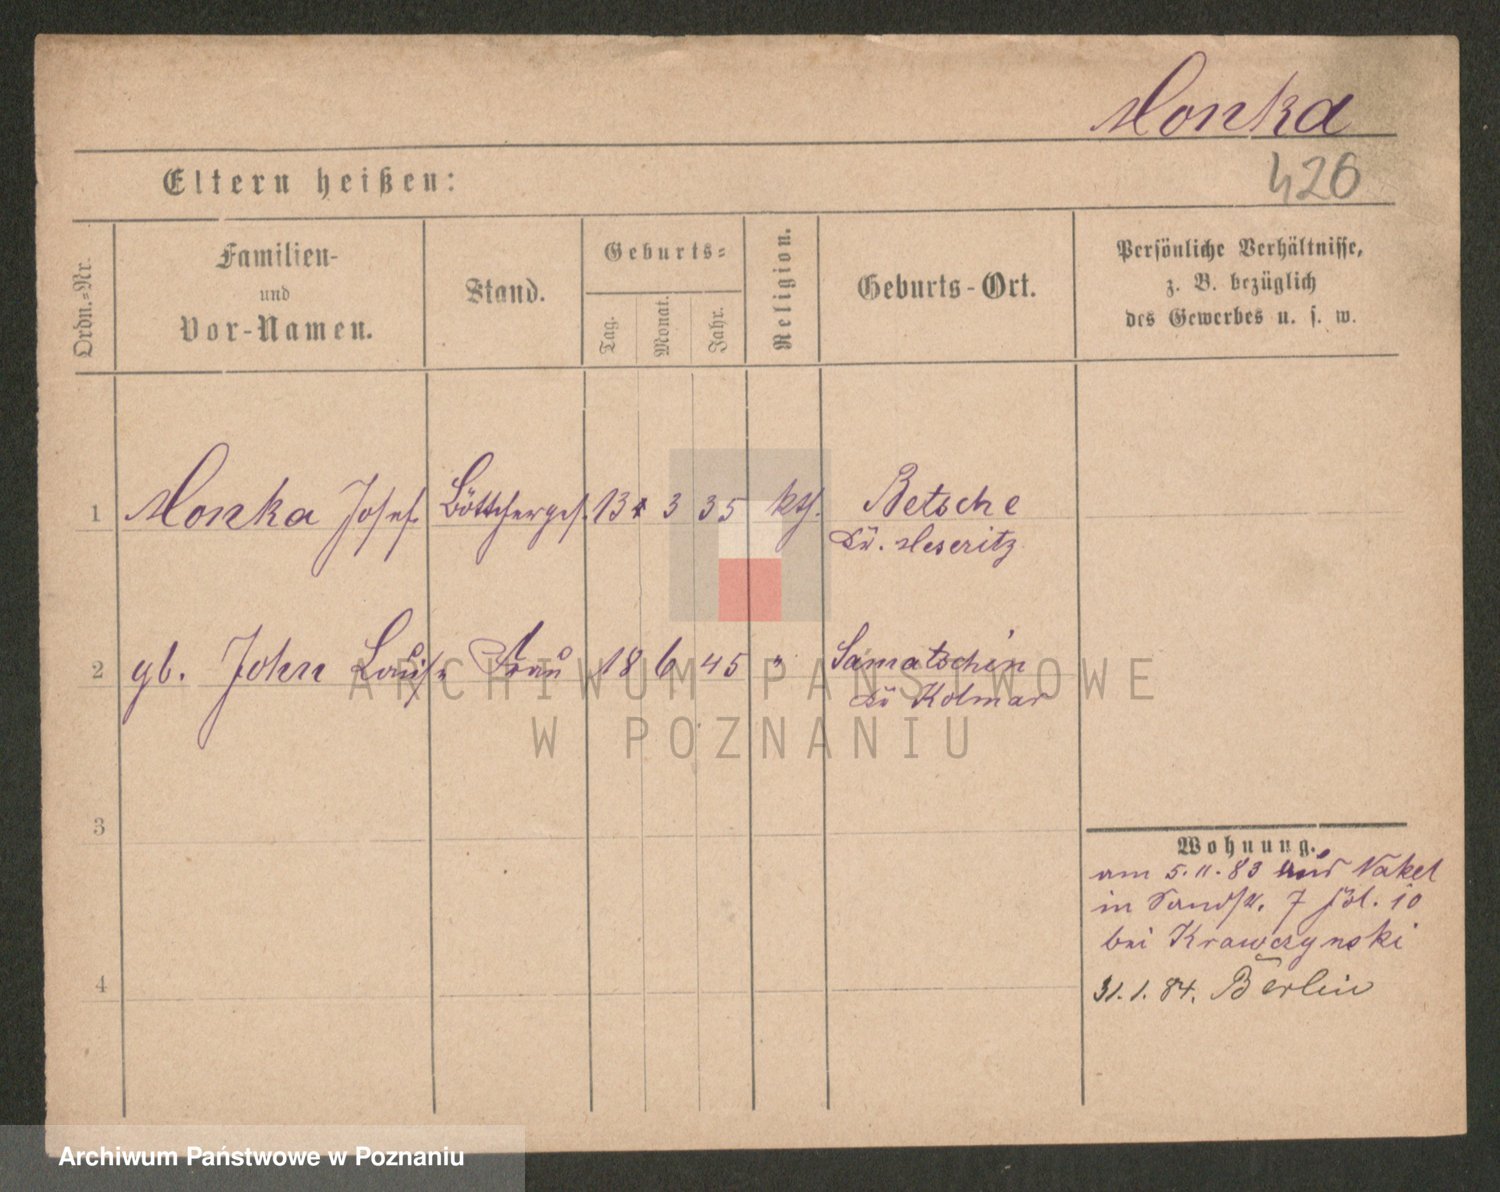 Monka
426
Eltern heißen:
Ordn.-Nr.
Familien-
und
Vor-Namen.
Stand.
Geburts-
Tag.
Monat.
Jahr.
Religion.
Geburts-Ort.
Persönliche Verhältnisse,
z. B. bezüglich
des Gewerbes u. s. w.
1 Monka Josef Böttcherges. 13 3 35 kth. Betsche
Kr. Meseritz
2 gb. John Louise Frau 18 6 45 " Samatschin
Kr. Kolmar
3
4
Wohnung.
am 5.11.83 aus Nakel
in Sandstr. 7 Bl. 10
bei Krawczynski
31.1.84. Berlin
ARCHIWUM PAŃSTWOWE
W POZNANIU
Archiwum Państwowe w Poznaniu